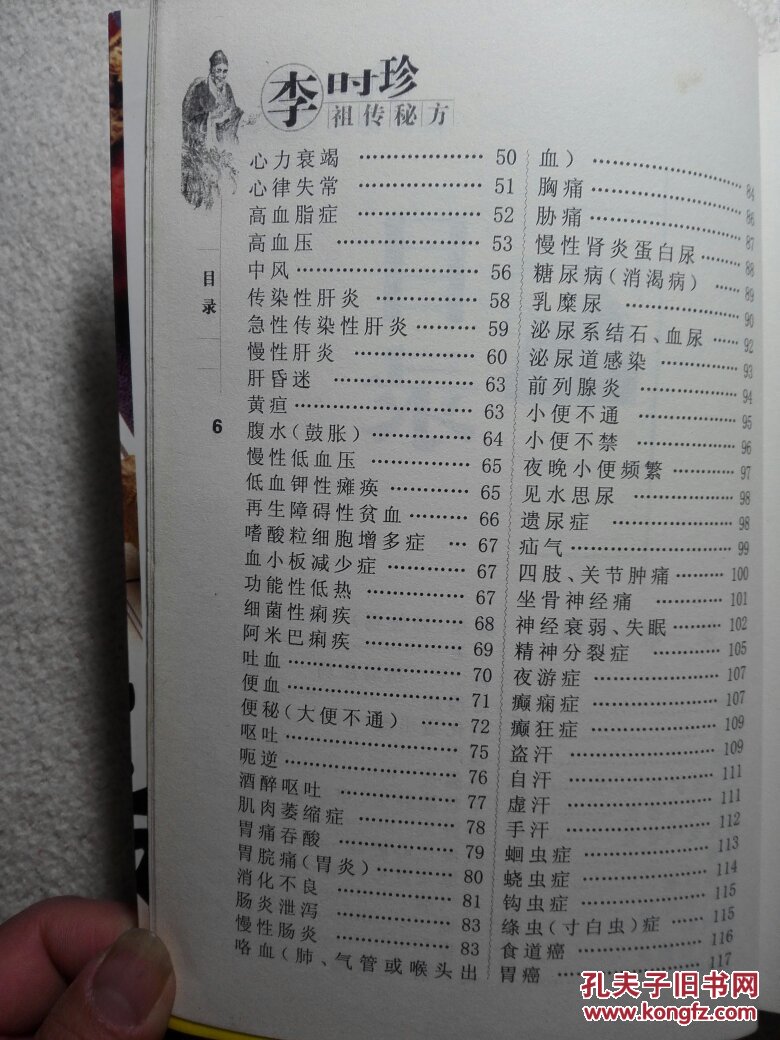 李时珍
祖传秘方
目录
6
心力衰竭 ⋯⋯ 50
心律失常 ⋯⋯ 51
高血脂症 ⋯⋯ 52
高血压 ⋯⋯ 53
中风 ⋯⋯ 56
传染性肝炎 ⋯⋯ 58
急性传染性肝炎 ⋯⋯ 59
慢性肝炎 ⋯⋯ 60
肝昏迷 ⋯⋯ 63
黄疸 ⋯⋯ 63
腹水(鼓胀) ⋯⋯ 64
慢性低血压 ⋯⋯ 65
低血钾性瘫痪 ⋯⋯ 65
再生障碍性贫血 ⋯⋯ 66
嗜酸粒细胞增多症 ⋯ 67
血小板减少症 ⋯⋯ 67
功能性低热 ⋯⋯ 67
细菌性痢疾 ⋯⋯ 68
阿米巴痢疾 ⋯⋯ 69
吐血 ⋯⋯ 70
便血 ⋯⋯ 71
便秘(大便不通) ⋯⋯ 72
呕吐 ⋯⋯ 75
呃逆 ⋯⋯ 76
酒醉呕吐 ⋯⋯ 77
肌肉萎缩症 ⋯⋯ 78
胃痛吞酸 ⋯⋯ 79
胃脘痛(胃炎) ⋯⋯ 80
消化不良 ⋯⋯ 81
肠炎泄泻 ⋯⋯ 83
慢性肠炎 ⋯⋯ 83
咯血(肺、气管或喉头出
血) ⋯⋯ 84
胸痛 ⋯⋯ 86
胁痛 ⋯⋯ 87
慢性肾炎蛋白尿 ⋯⋯ 88
糖尿病(消渴病) ⋯⋯ 89
乳糜尿 ⋯⋯ 90
泌尿系结石、血尿 ⋯⋯ 92
泌尿道感染 ⋯⋯ 93
前列腺炎 ⋯⋯ 94
小便不通 ⋯⋯ 95
小便不禁 ⋯⋯ 96
夜晚小便频繁 ⋯⋯ 97
见水思尿 ⋯⋯ 98
遗尿症 ⋯⋯ 98
疝气 ⋯⋯ 99
四肢、关节肿痛 ⋯⋯ 100
坐骨神经痛 ⋯⋯ 101
神经衰弱、失眠 ⋯⋯ 102
精神分裂症 ⋯⋯ 105
夜游症 ⋯⋯ 107
癫痫症 ⋯⋯ 107
癫狂症 ⋯⋯ 109
盗汗 ⋯⋯ 109
自汗 ⋯⋯ 111
虚汗 ⋯⋯ 111
手汗 ⋯⋯ 112
蛔虫症 ⋯⋯ 113
蛲虫症 ⋯⋯ 114
钩虫症 ⋯⋯ 115
绦虫(寸白虫)症 ⋯⋯ 115
食道癌 ⋯⋯ 116
胃癌 ⋯⋯ 117
孔夫子旧书网
www.kongfz.com